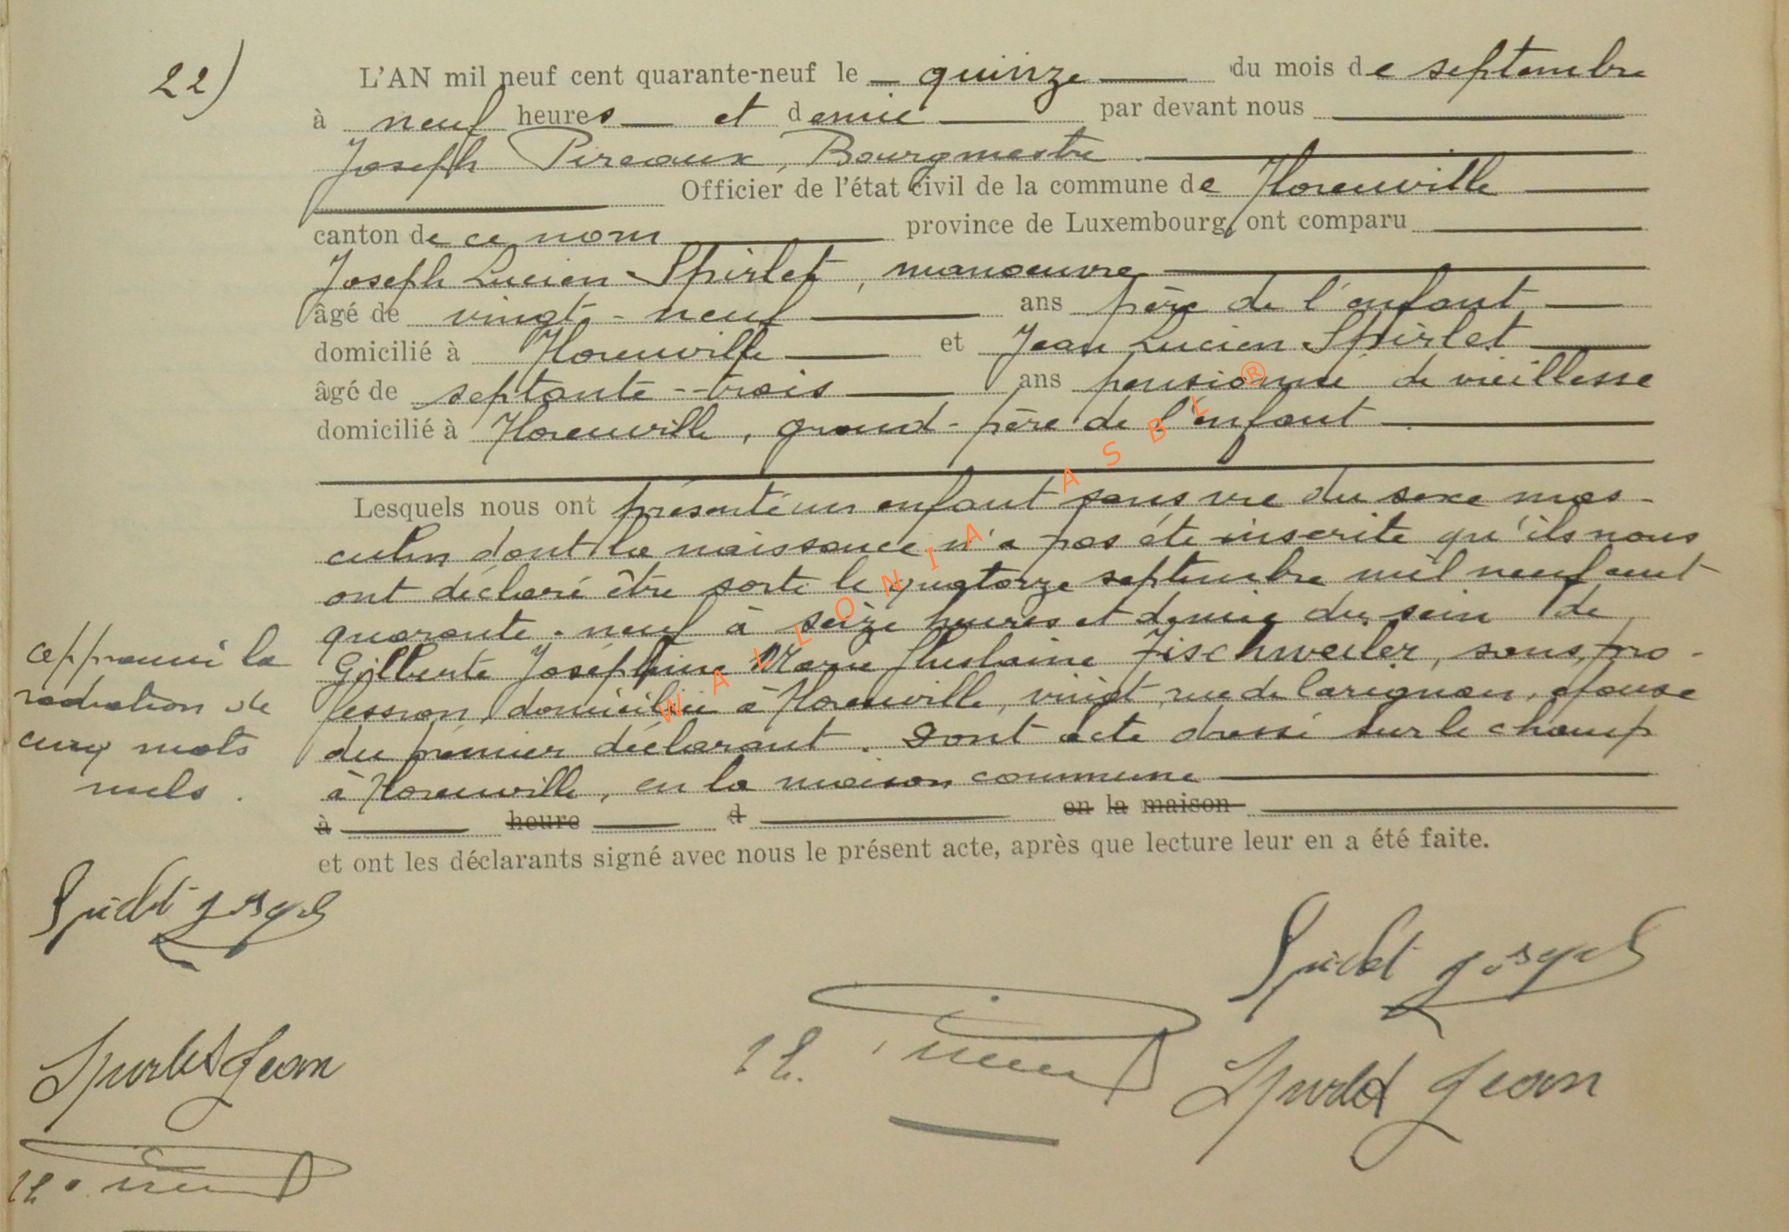 22)
L'AN mil neuf cent quarante-neuf le quinze du mois de septembre
à neuf heures et demie par devant nous
Joseph Pireaux, Bourgmestre
Officier de l'état civil de la commune de Florenville
canton de ce nom province de Luxembourg, ont comparu
Joseph Lucien Spirlet, manoeuvre
âgé de vingt-neuf ans père de l'enfant
domicilié à Florenville et Jean Lucien Spirlet
âgé de septante-trois ans pensionné de vieillesse
domicilié à Florenville, grand-père de l'enfant.
Lesquels nous ont présenté un enfant sans vie du sexe mas-
culin dont la naissance n'a pas été inscrite qu'ils nous
ont déclaré être sorti le quatorze septembre mil neuf cent
quarante-neuf à seize heures et demie du sein de
Gilberte Joséphine Marie Ghislaine Fischweiler, sans pro-
fession, domiciliée à Florenville, vingt, rue de Carignan, épouse
du premier déclarant. Dont acte dressé sur le champ
à Florenville, en la maison commune
à heure d en la maison
et ont les déclarants signé avec nous le présent acte, après que lecture leur en a été faite.
approuvé la
radiation de
cinq mots
nuls.
Spirlet Joseph
Spirlet Jean
Spirlet Joseph
Spirlet Jean
WALLONIA ASBL ®